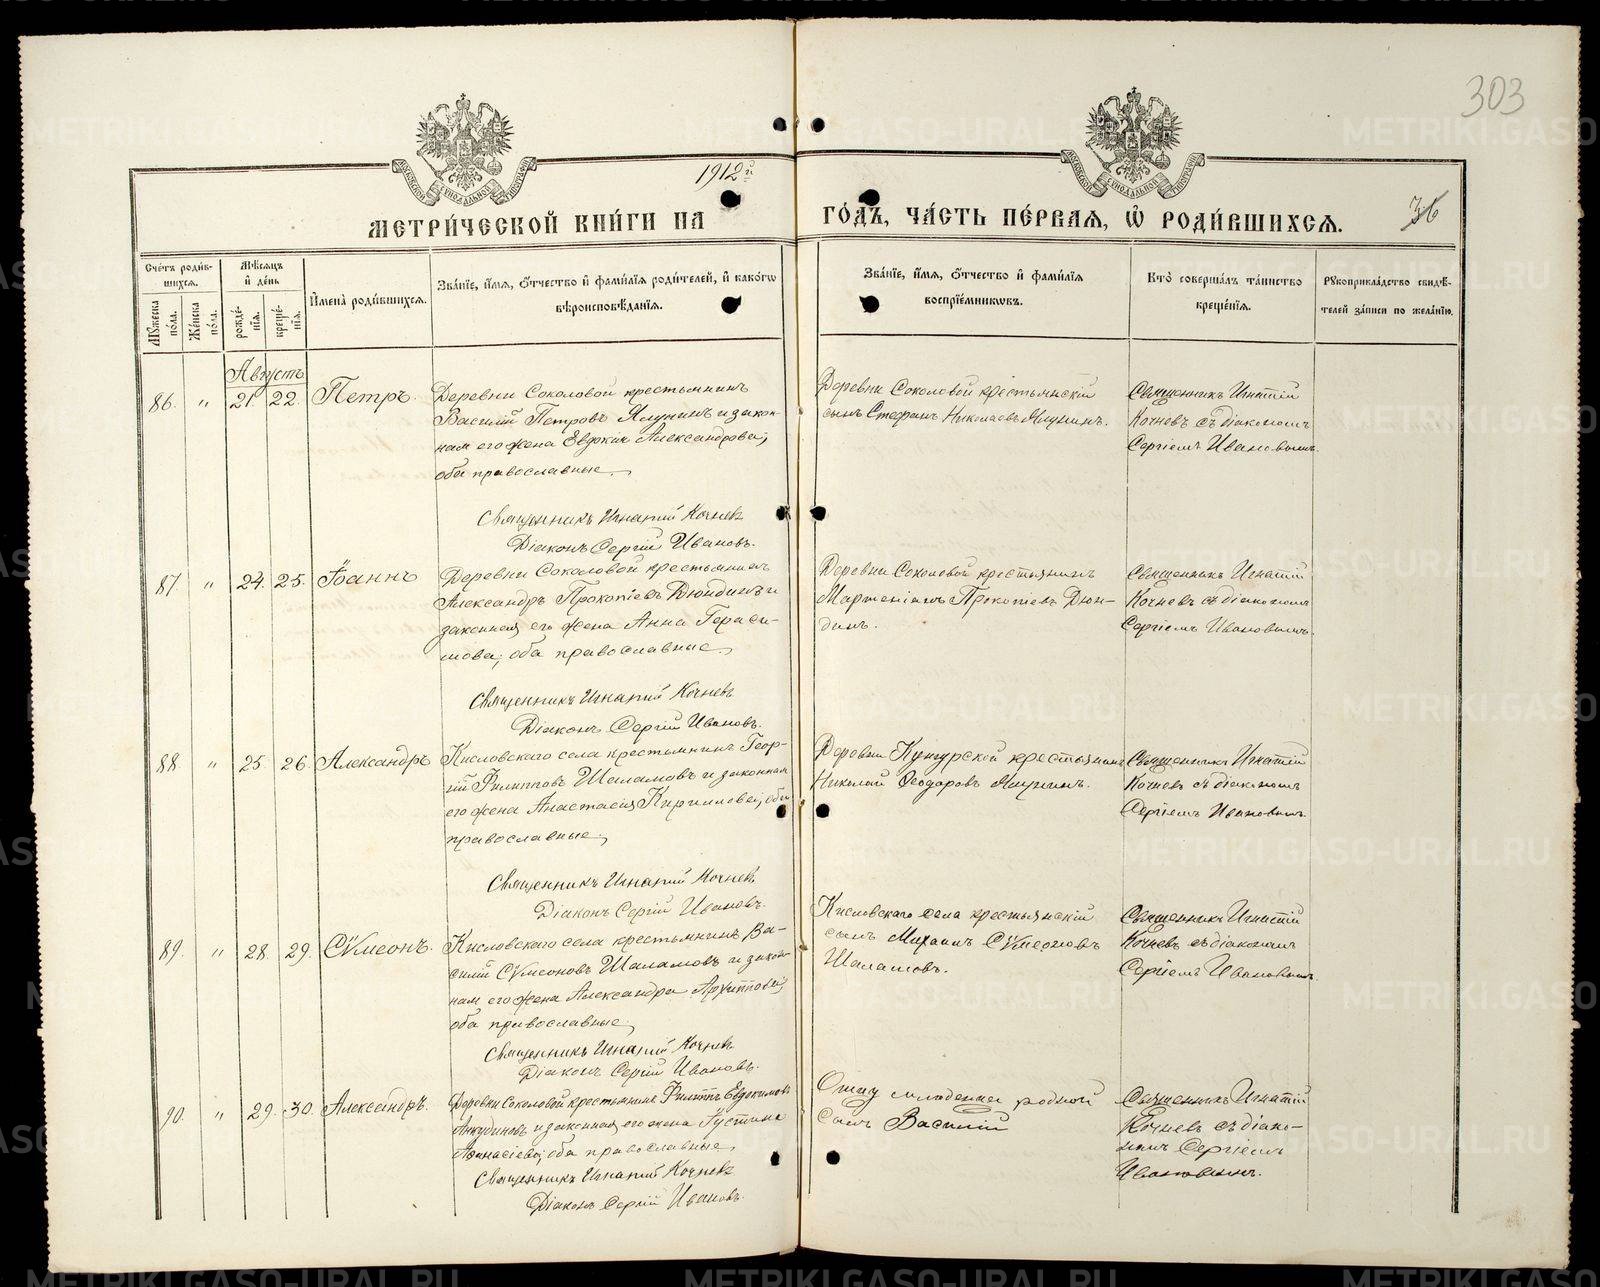 303
1912й
МЕТРИЧЕСКОЙ КНИГИ НА ГОДЪ, ЧАСТЬ ПЕРВАЯ, Ѿ РОДИВШИХСЯ.
Счетъ родившихся.
Мужеска пола.
Женска пола.
Мѣсяцъ и день
рожденія.
крещенія.
Имена родившихся.
Званіе, имя, отчество и фамилія родителей, и какогѡ
вѣроисповѣданія.
Званіе, имя, отчество и фамилія
воспріемниковъ.
Кто совершалъ таинство
крещенія.
Рукоприкладство свидѣтелей записи по желанію.
Августъ
86. " 21. 22. Петръ.
Деревни Соколовой крестьянинъ
Василій Петровъ Ялунинъ и закон-
ная его жена Евдокія Александрова;
оба православные.
Деревни Соколовой крестьянскій
сынъ Стефанъ Николаевъ Ялунинъ.
Священникъ Игнатій
Кочневъ съ діакономъ
Сергіемъ Ивановымъ.
Священникъ Игнатій Кочневъ
Діаконъ Сергій Ивановъ.
87 " 24. 25. Іоаннъ
Деревни Соколовой крестьянинъ
Александръ Прокопіевъ Дюндинъ и
законная его жена Анна Гераси-
мова; оба православные
Деревни Соколовой крестьянинъ
Прокопіевъ Дюн-
динъ.
Священникъ Игнатій
Кочневъ съ діакономъ
Сергіемъ Ивановымъ.
Священникъ Игнатій Кочневъ
Діаконъ Сергій Ивановъ.
88 " 25. 26. Александръ
Кисловскаго села крестьянинъ Геор-
гій Филипповъ Шаламовъ и законная
его жена Анастасія Кириллова; оба
православные;
Деревни Кунгурской крестьянинъ
Николай Ѳеодоровъ
Священникъ Игнатій
Кочневъ съ діакономъ
Сергіемъ Ивановымъ.
Священникъ Игнатій Кочневъ
Діаконъ Сергій Ивановъ.
89. " 28. 29. Сѵмеонъ.
Кисловскаго села крестьянинъ Ва-
силій Сѵмеоновъ Шаламовъ и закон-
ная его жена Александра Архиппова;
оба православные;
Кисловскаго села крестьянскій
сынъ Михаилъ Сѵмеоновъ
Шаламовъ.
Священникъ Игнатій
Кочневъ съ діакономъ
Сергіемъ Ивановымъ
Священникъ Игнатій Кочневъ
Діаконъ Сергій Ивановъ.
90. " 29. 30. Александръ.
Деревни Соколовой крестьянинъ Филиппъ Евдокимовъ
Анкудиновъ и законная его жена Іустина
Аѳанасіева; оба православные;
Отцу младенца родной
сынъ Василій
Священникъ Игнатій
Кочневъ съ діако-
номъ Сергіемъ
Ивановымъ.
Священникъ Игнатій Кочневъ
Діаконъ Сергій Ивановъ.
METRIKI.GASO-URAL.RU